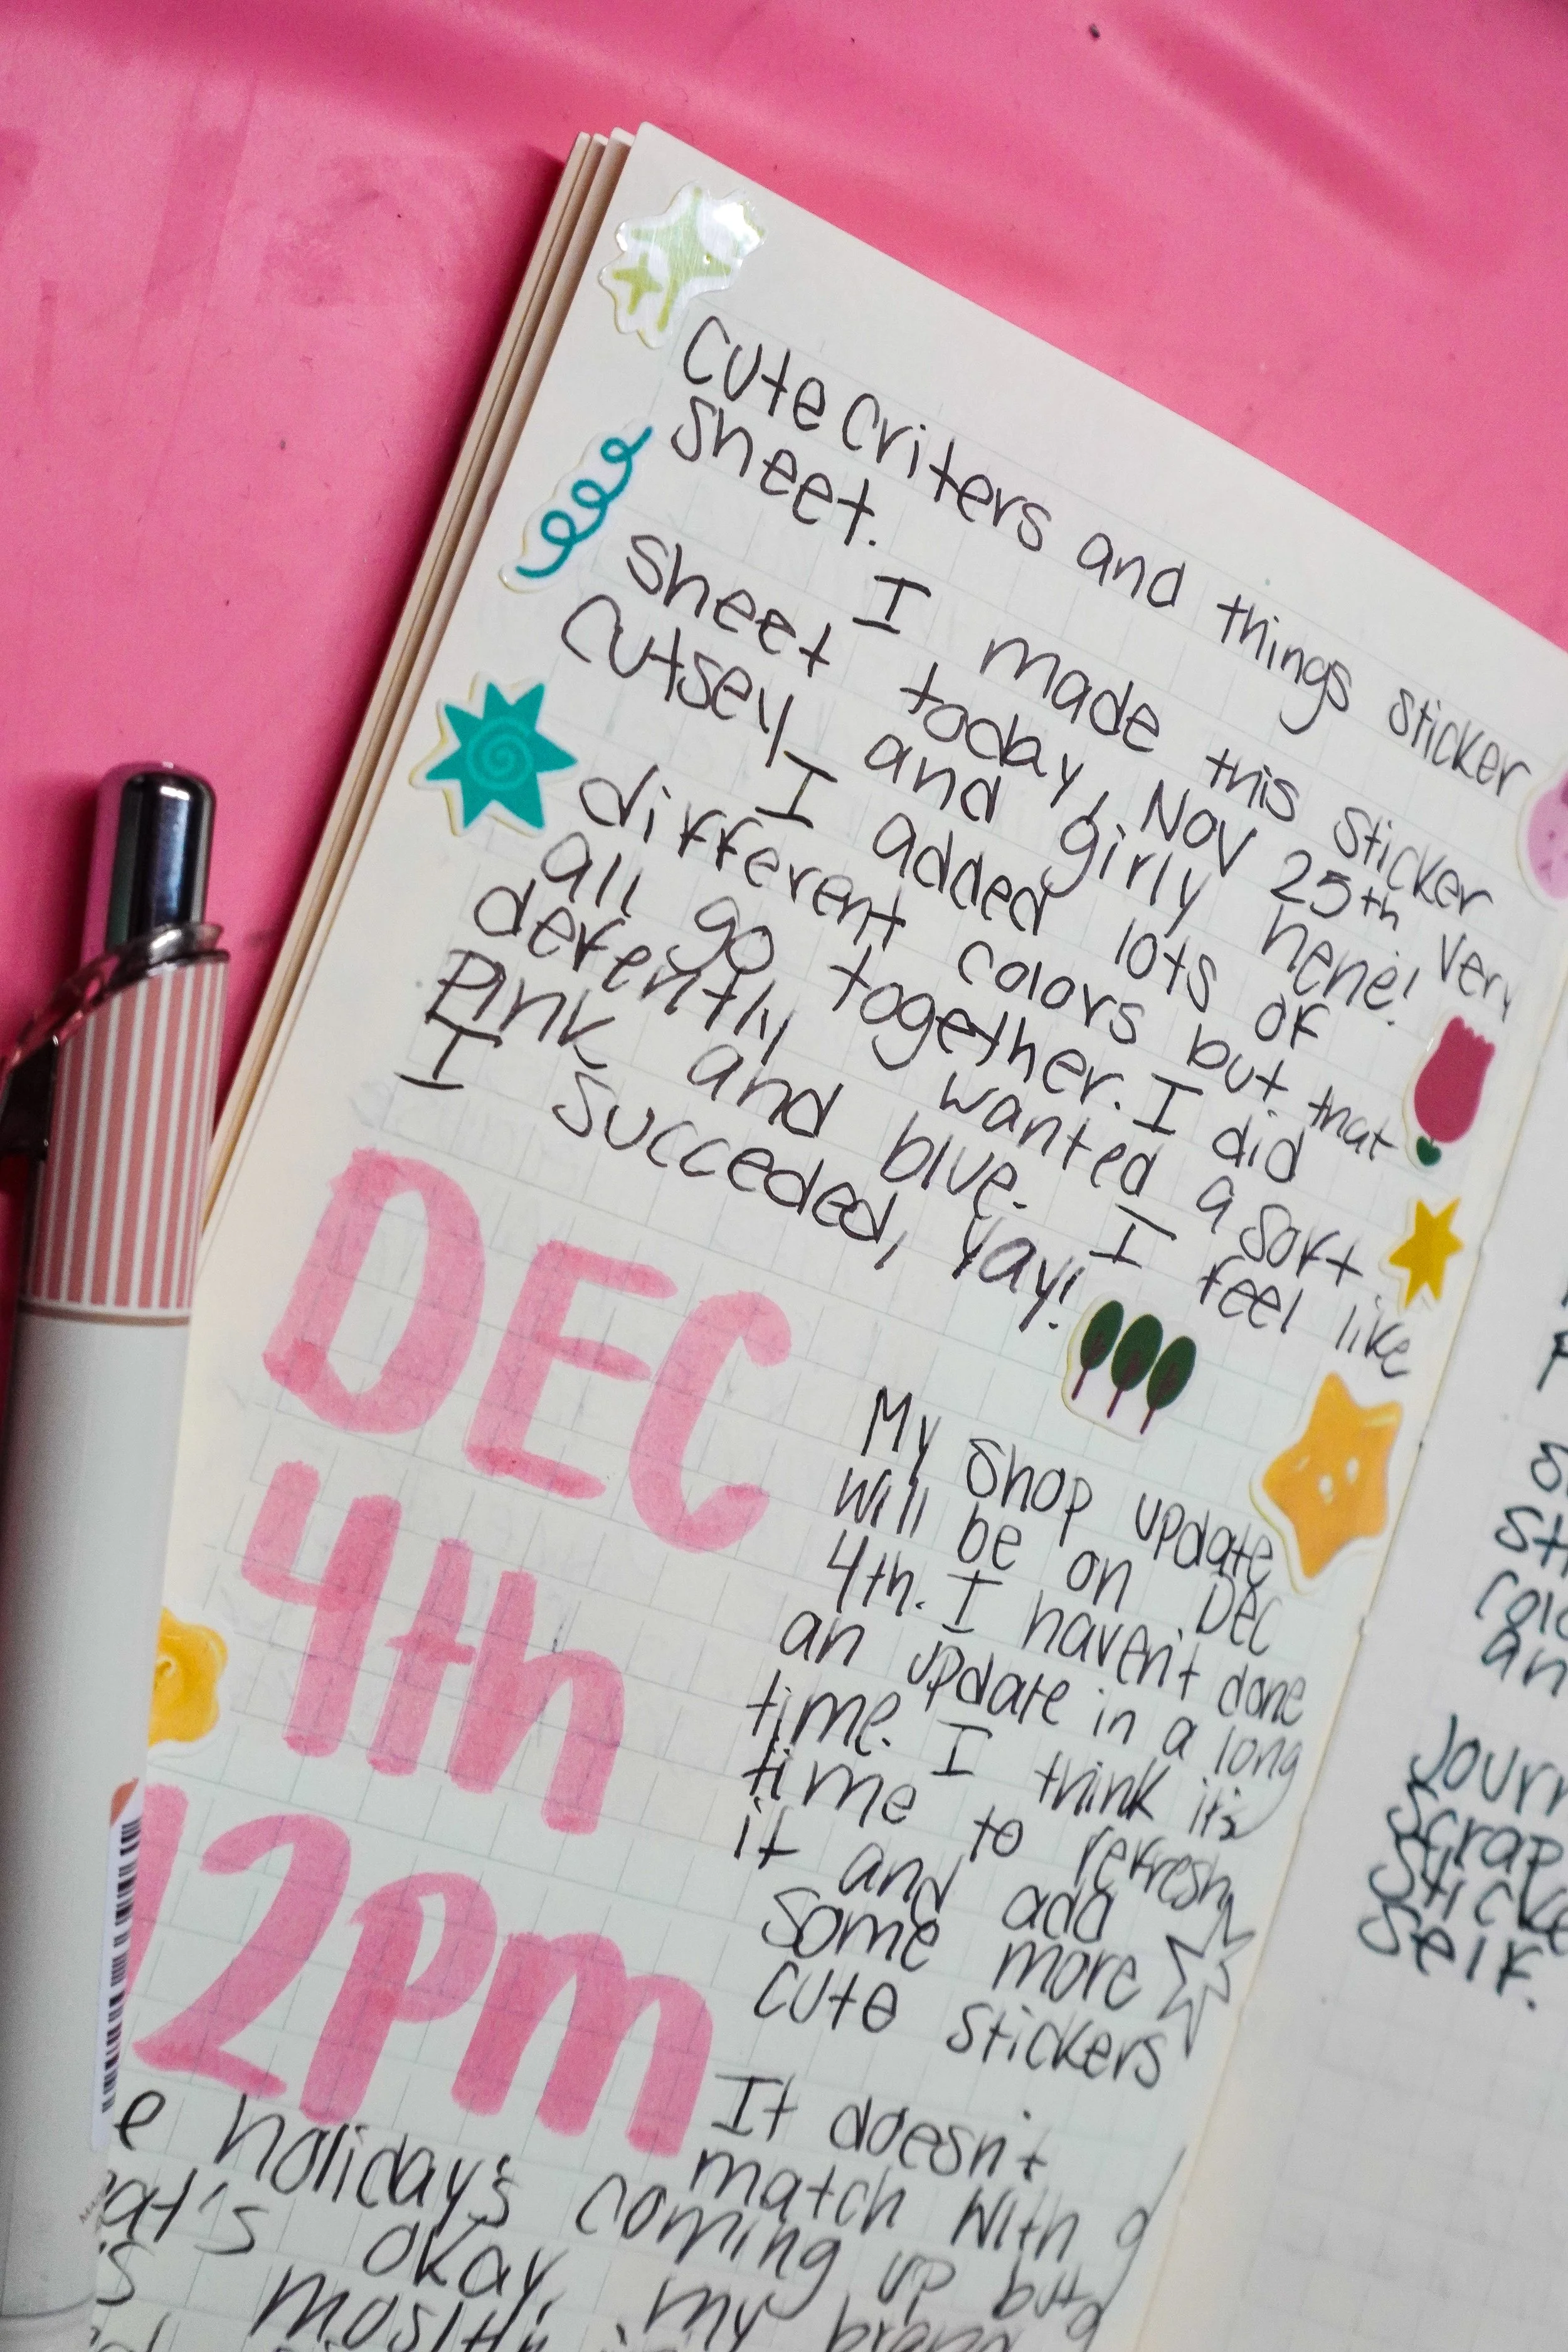 Cute Criters and things sticker
sheet.
I made this sticker
sheet today, Nov 25th very
cutsey and girly hehe!
I added lots of
different colors but that
all go together. I did
defently wanted a sort
pink and blue. I feel like
I succeded, yay!
DEC
4th
12pm
My shop update
will be on Dec
4th. I haven't done
an update in a long
time. I think it's
time to refresh
it and add
some more
cute stickers
It doesn't
match with
holiday's coming up but
okay,
mostly my brand
Journ
Scrap
Sticke
self.